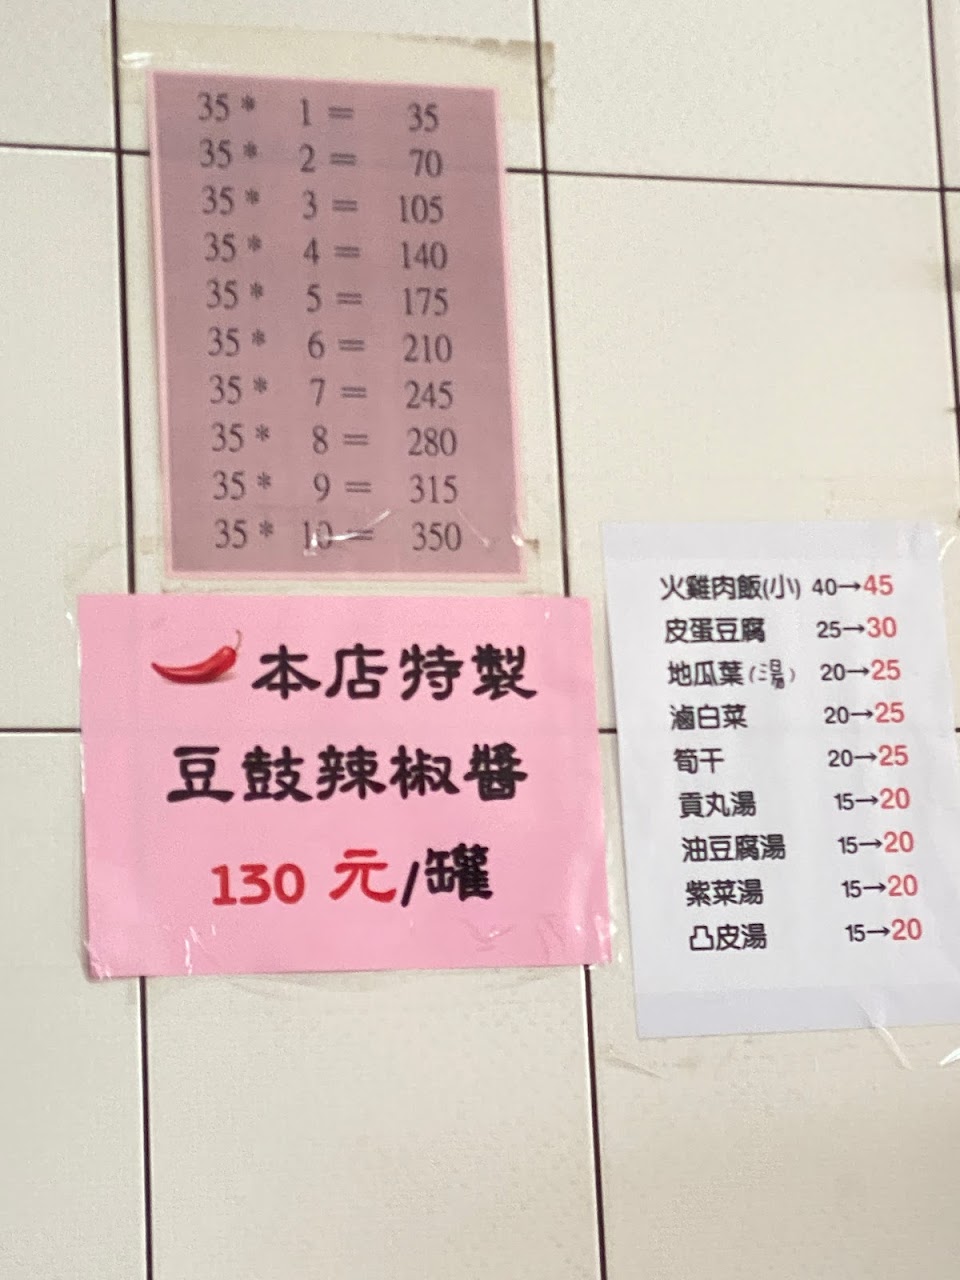 35 * 1 = 35
35 * 2 = 70
35 * 3 = 105
35 * 4 = 140
35 * 5 = 175
35 * 6 = 210
35 * 7 = 245
35 * 8 = 280
35 * 9 = 315
35 * 10 = 350
本店特製
豆鼓辣椒醬
130 元/罐
火雞肉飯(小) 40→45
皮蛋豆腐 25→30
地瓜葉(湯) 20→25
滷白菜 20→25
筍干 20→25
貢丸湯 15→20
油豆腐湯 15→20
紫菜湯 15→20
凸皮湯 15→20